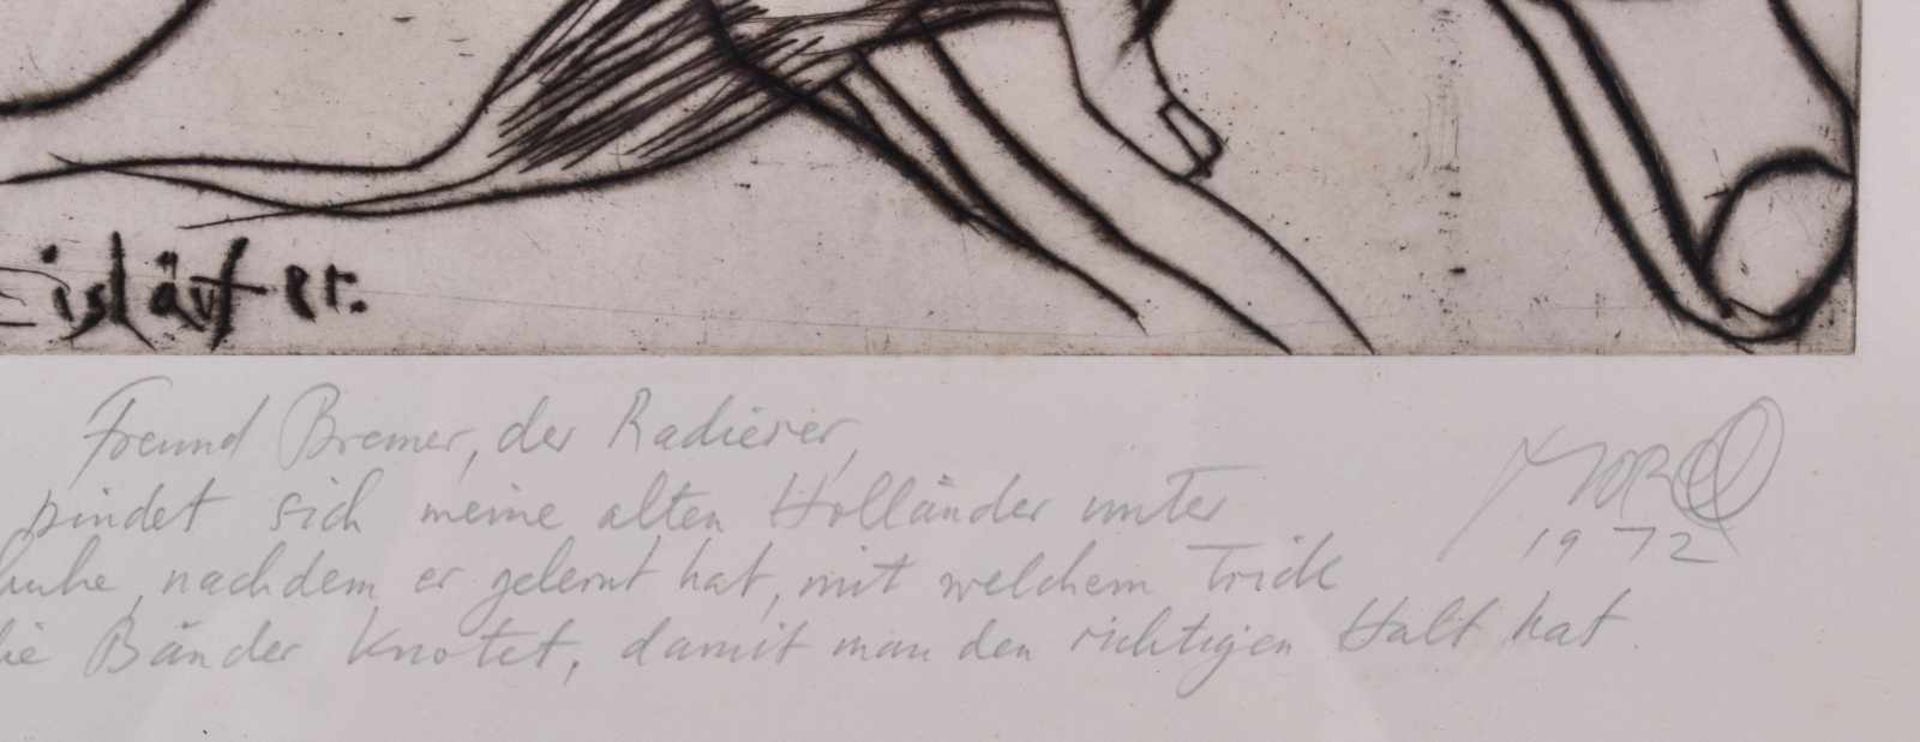 Eisläufer.
Freund Bremer, der Radierer,
bindet sich meine alten Holländer unter
nachdem er gelernt hat, mit welchem Trick
die Bänder knotet, damit man den richtigen Halt hat.
1972